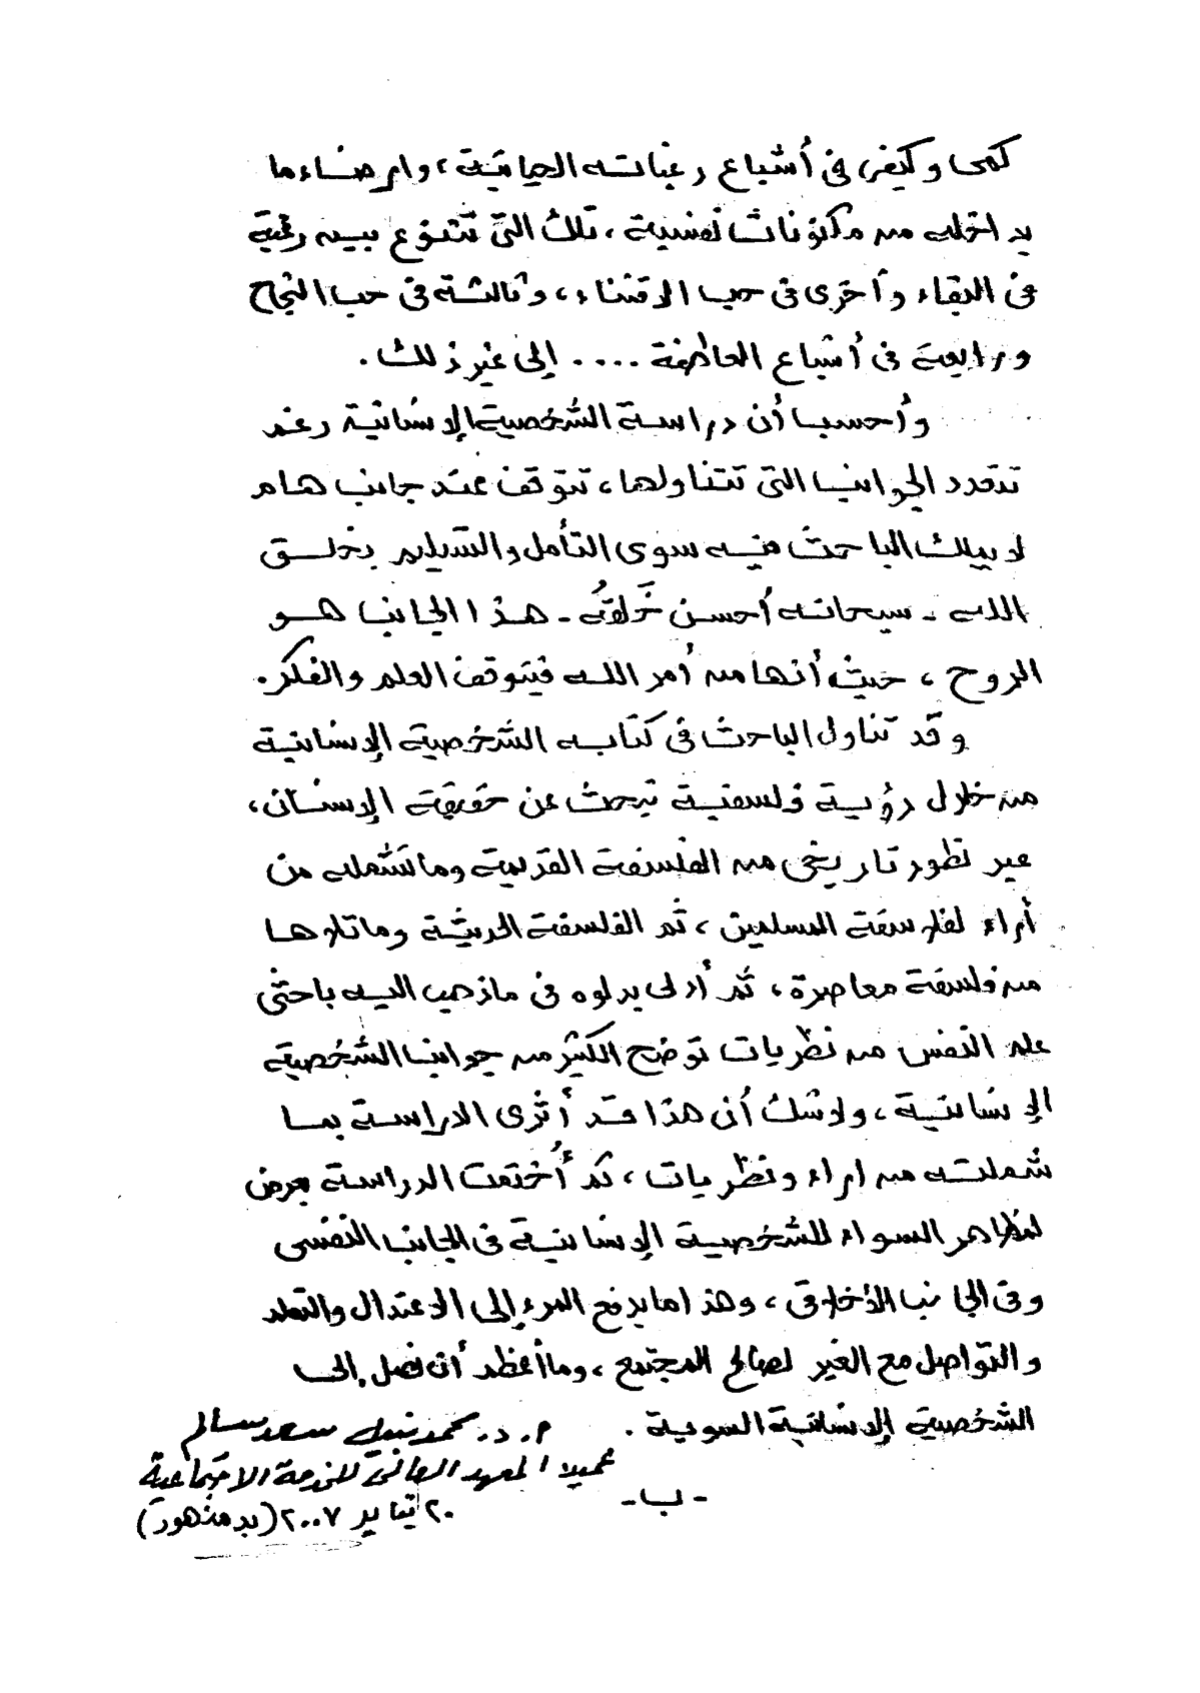 كمى وكيفى فى أشباع رغباته الحياتية، وإرضاء ما
يداخله من مكنونات نفسية، تلك التى تتنوع بين رغبة
فى البقاء وأخرى فى حب الاقتناء، وثالثة فى حب النجاح
ورابعة فى أشباع العاطفة .... إلى غير ذلك.
وأحسب أن دراسة الشخصية الإنسانية رغم
تتعدد الجوانب التى تتناولها، تتوقف عند جانب هام
لا يملك الباحث فيه سوى التأمل والتسليم بخلق
الله - سبحانه أحسن خَلقَهُ - هذا الجانب هو
الروح، حيث أنها من أمر الله فيتوقف العلم والفكر.
وقد تناول الباحث فى كتابه الشخصية الإنسانية
من خلال رؤية فلسفية تبحث عن حقيقة الإنسان،
عبر تطور تاريخى من الفلسفة القديمة وما تشمله من
أراء لفلاسفة المسلمين، ثم الفلسفة الحديثة وما تلاها
من فلسفة معاصرة، ثم أدلى بدلوه فى ما ذهب اليه باحثى
علم النفس من نظريات توضح الكثير من جوانب الشخصية
الإنسانية، ولا شك أن هذا قد أثرى الدراسة بما
شملته من اراء ونظريات، ثم أُختتمت الدراسة بعرض
لمظاهر السواء للشخصية الإنسانية فى الجانب النفسى
وفى الجانب الأخلاقى، وهذا ما يدفع المرء إلى الاعتدال والتعلم
والتواصل مع الغير لصالح المجتمع، وما أعظم أن نصل إلى
الشخصية الإنسانية السوية.
م.د. محمد نبيل سعد سالم
عميد المعهد العالى للخدمة الاجتماعية
٢٠ يناير ٢٠٠٧ (بدمنهور)
- ب -